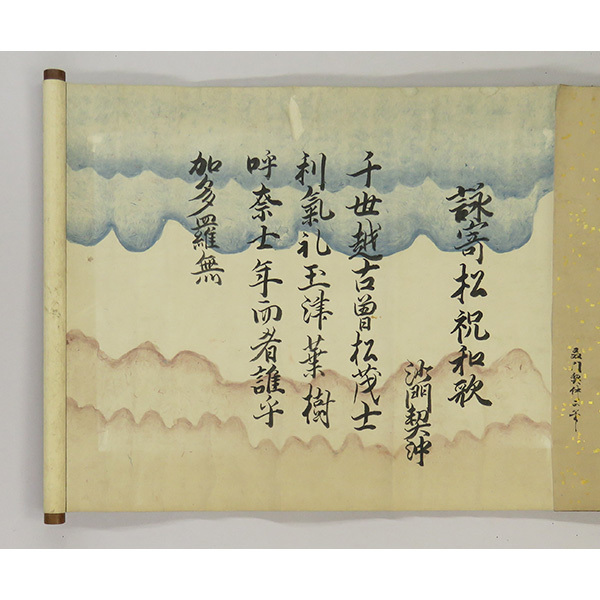 詠寄松祝和歌
沙門契沖
千世越古曽松茂士
利氣礼玉津葉樹
呼奈士年而者誰乎
加多皿羅無